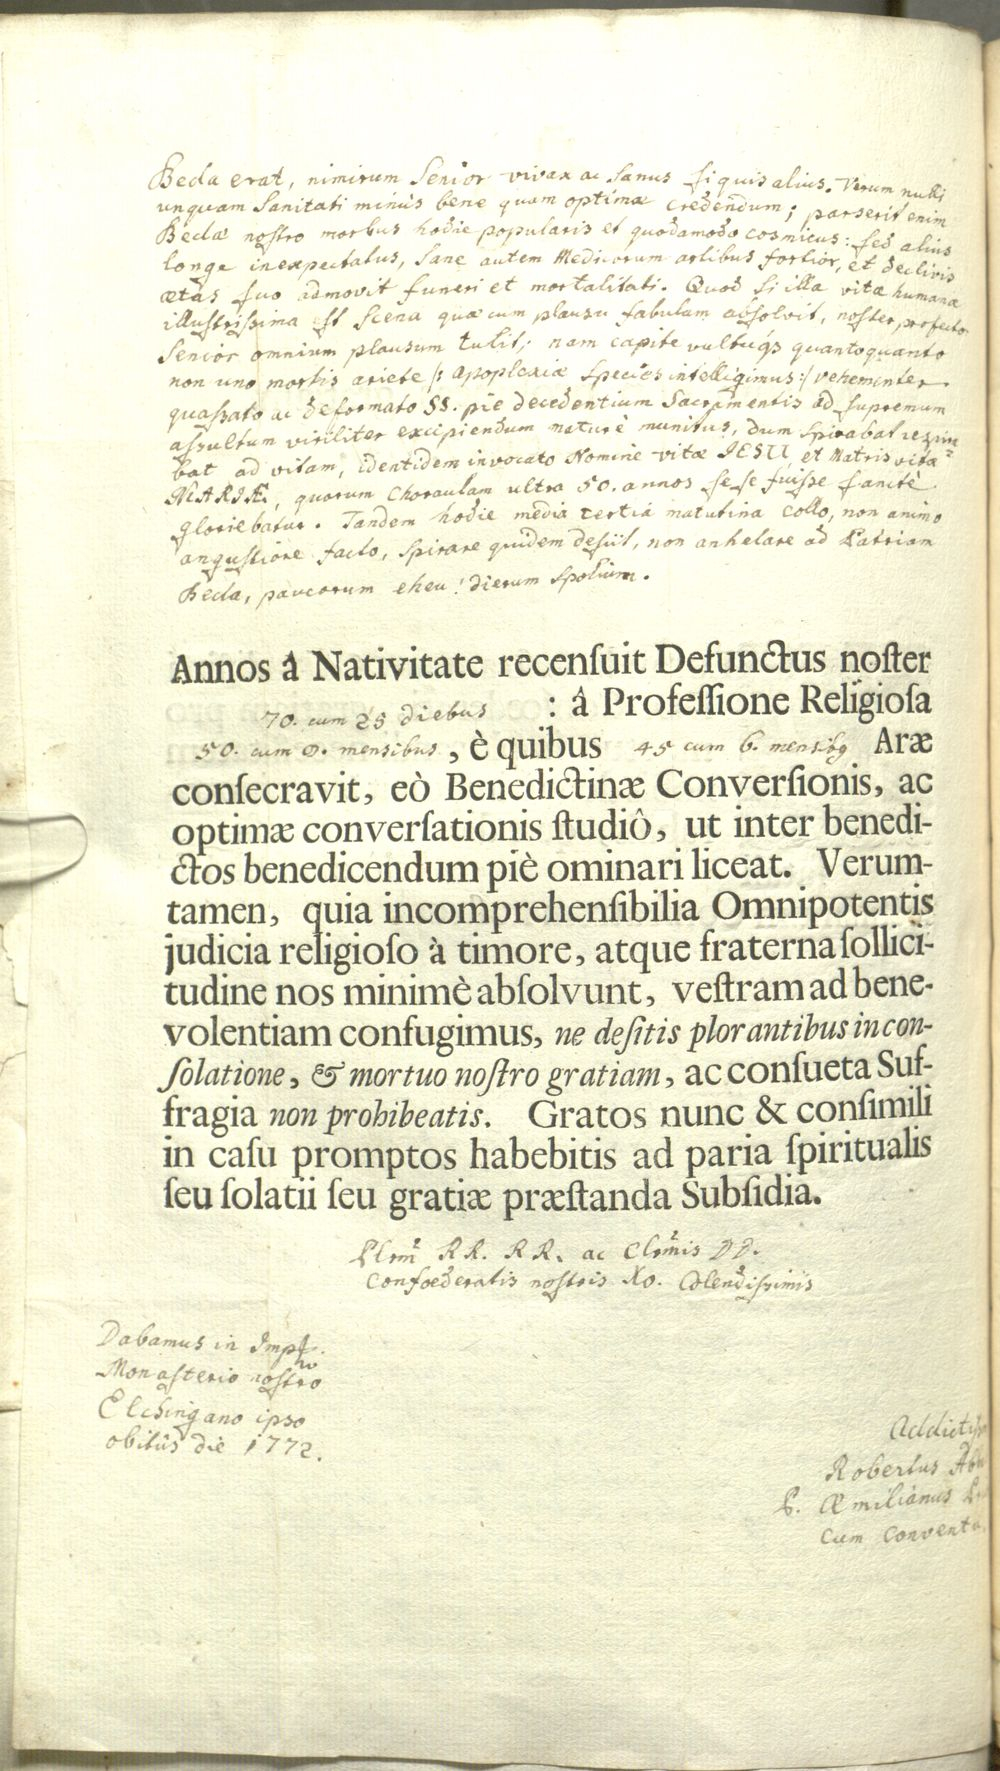 Beda erat, nimirum Senior vivax ac Sanus si quis alius. Verum nulli
unquam Sanitati minùs bene quam optimæ credendum; parserit enim
Bedæ nostro morbus hodie popularis et quodamodo cosmicus: sed alius
longe inexpectatus, sane autem Medicorum artibus fortior, et declivis
ætas suo admovit funeri et mortalitati. Quod si illa vitæ humanæ
illustrissima est Scena quæ cum plausu fabulam absolvit, noster profecto
Senior omnium plausum tulit; nam capite vultuq́s quantoquanto
non uno mortis ariete /: Apoplexiæ Species intelligimus :/ vehementer
quassato ac deformato SS. pie decedentium Sacramentis ad supremum
assultum viriliter excipiendum maturè munitus, dum spirabat
bat ad vitam, identidem invocato Nomine vitæ JESU, et Matris vitæ
MARIÆ, quorum Choraulam ultra 50. annos se se fuisse sanctè
gloriebatur. Tandem hodie media tertiâ matutina collo, non animo
angustiore facto, spirare quidem desiit, non anhelare ad Patriam
Beda, paucorum eheu! dierum Spolium.
Annos â Nativitate recensuit Defunctus noster
70. cum 25 diebus : â Professione Religiosa
50. cum mensibus, è quibus 45 cum 6. mensibq Aræ
consecravit, eò Benedictinæ Conversionis, ac
optimæ conversationis studiô, ut inter benedi-
ctos benedicendum piè ominari liceat. Verum-
tamen, quia incomprehensibilia Omnipotentis
judicia religioso à timore, atque fraterna sollici-
tudine nos minimè absolvunt, vestram ad bene-
volentiam confugimus, ne desitis plorantibus in con-
solatione, & mortuo nostro gratiam, ac consueta Suf-
fragia non prohibeatis. Gratos nunc & consimili
in casu promptos habebitis ad paria spiritualis
seu solatii seu gratiæ præstanda Subsidia.
RR. RR. ac DD.
Confoederatis nostris Xo. Colendissimis
Dabamus in
Monasterio nostro
Elchingano ipso
obitûs die 1772.
Robertus
P. Æmilianus
cum